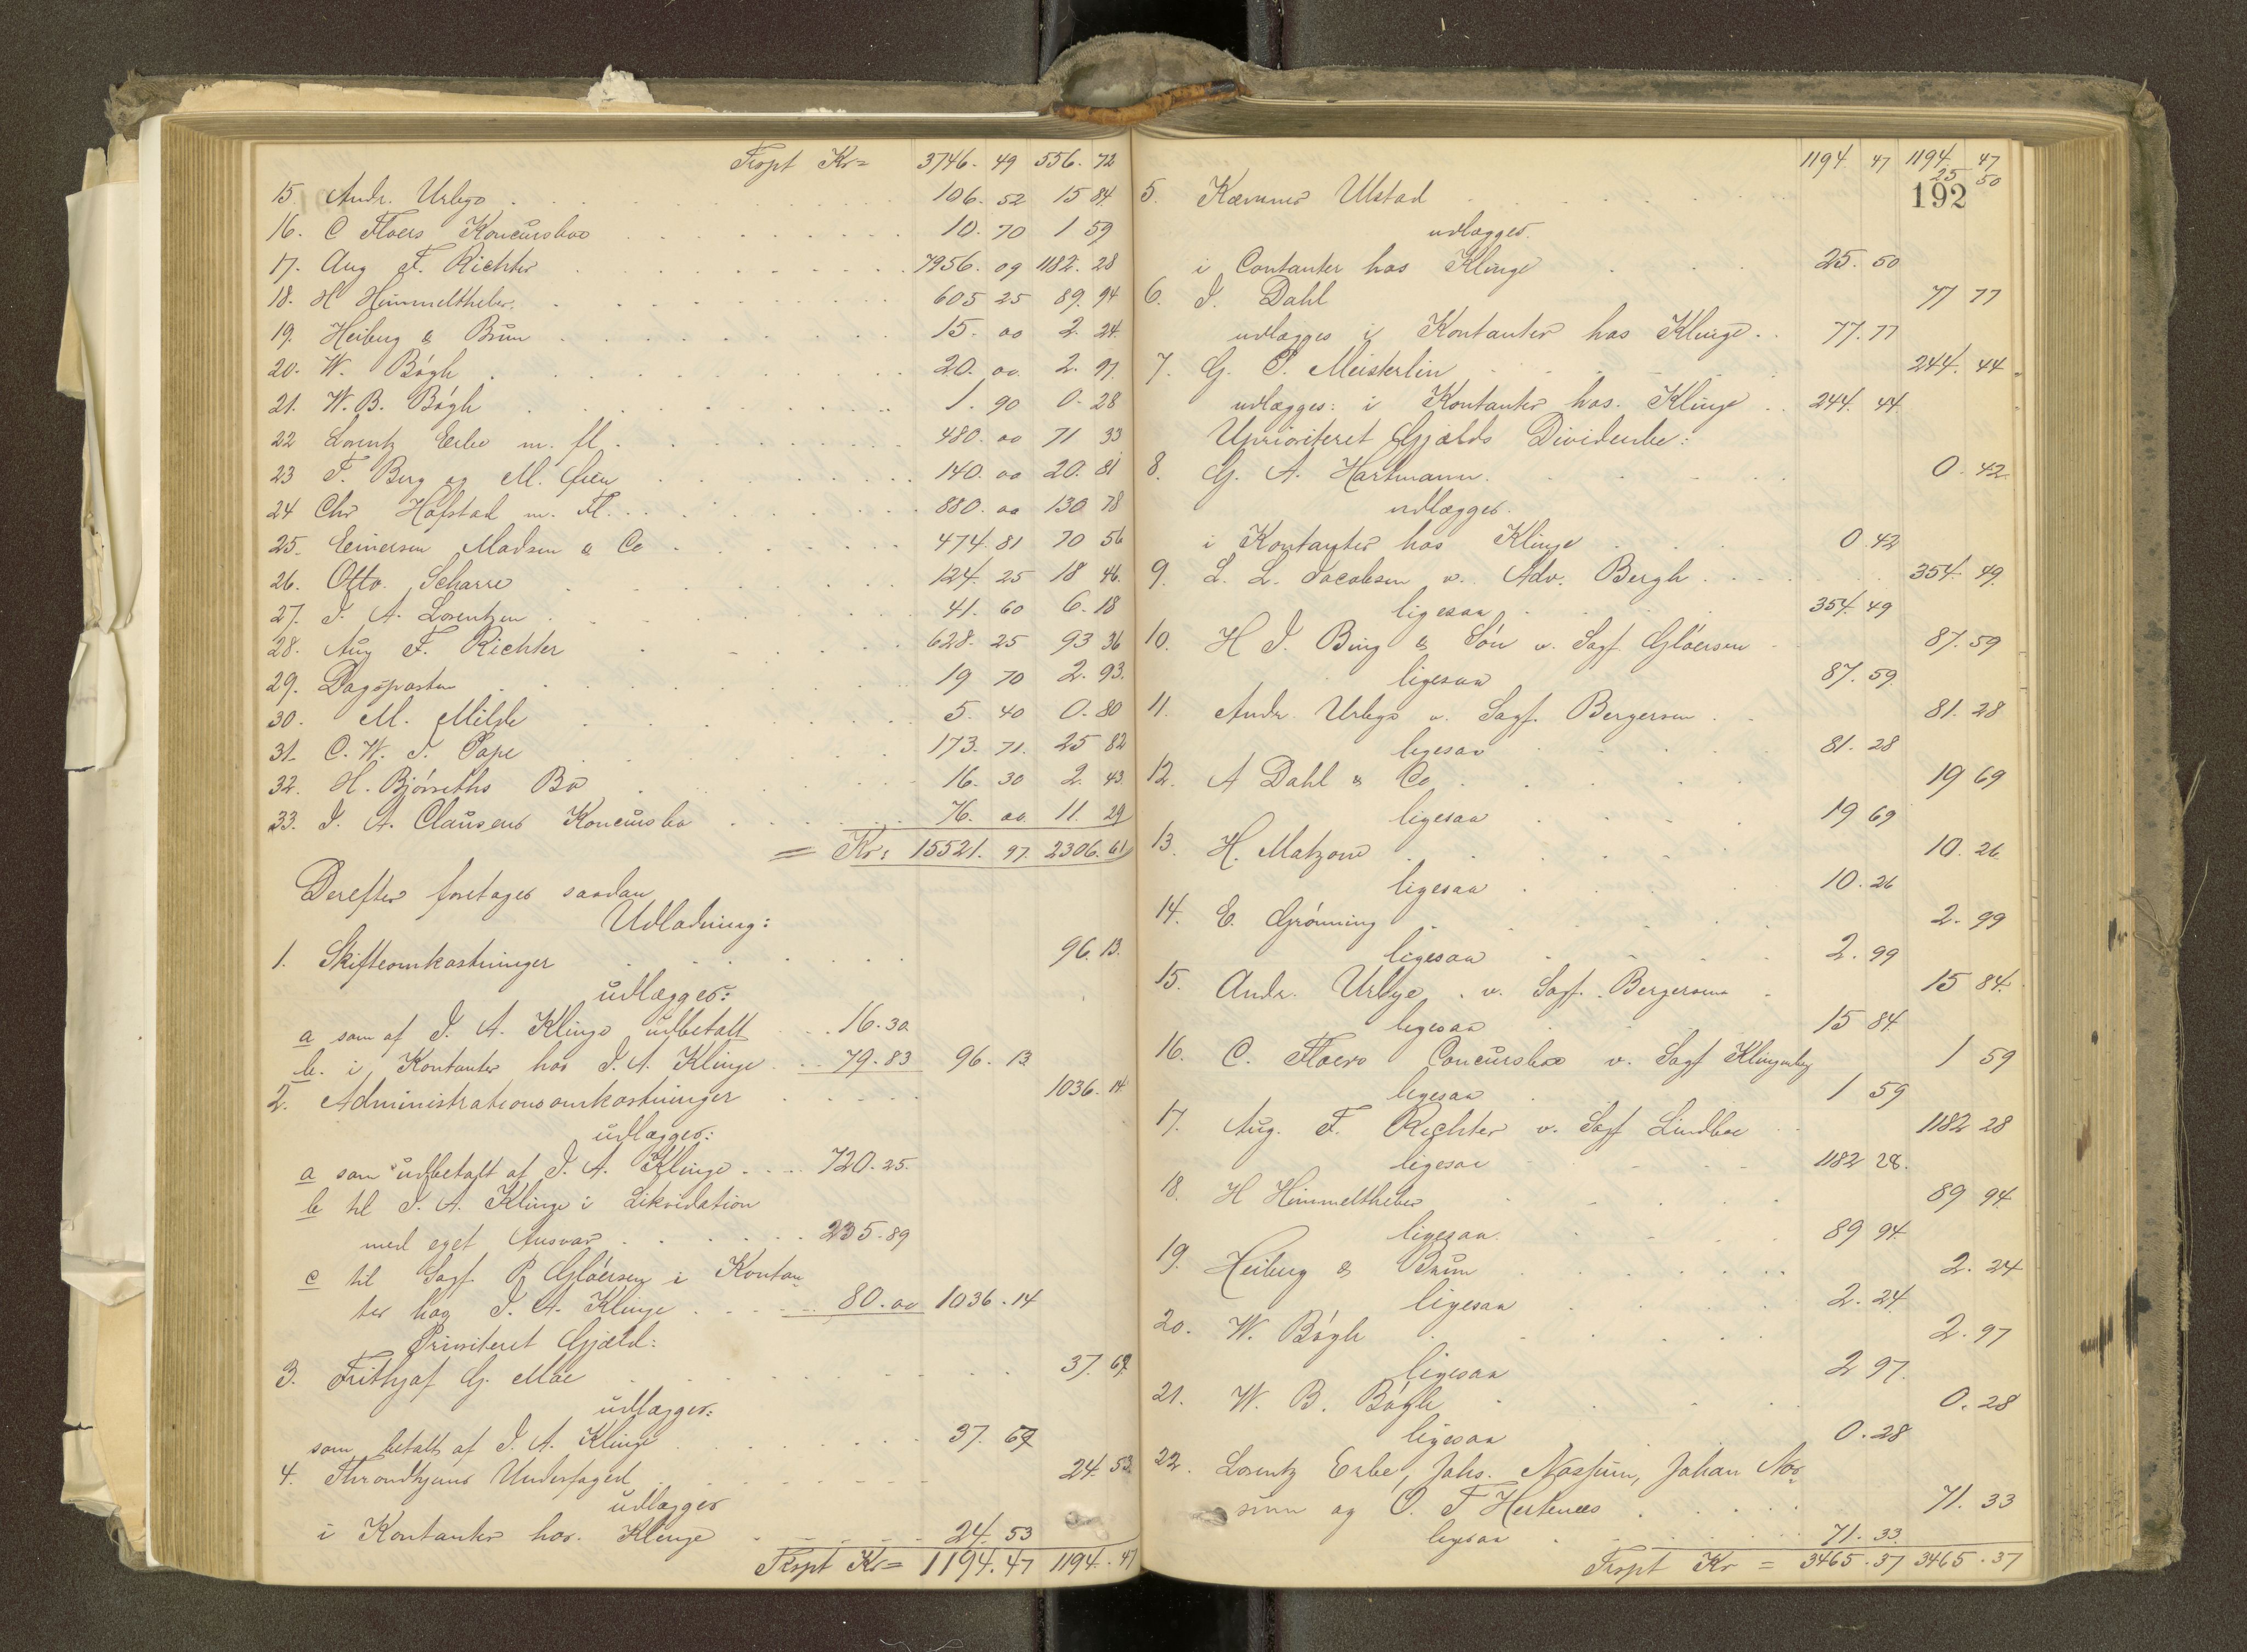 Trspt Kr= 3746. 49 556. 72
15. Andr. Urbye 106. 52 15 84.
16. C Floers Koncursbo 10. 70 1 59
17. Aug F. Richter 7956. 09 1182. 28
18. H Himmeltheber 605 25 89. 94
19. Heiberg & Brun 15. 00 2. 24.
20. W. Bøgh 20. 00. 2. 97.
21. W. B. Bøgh 1. 90 0. 28
22 Lorentz Erbe m. fl. 480. 00 71 33
23 F. Berg og M. Øien 140. 00 20. 81
24 Chr Hofstad m. Fl. 880. 00 130 78
25. Einersen Madsen & Co 474. 81 70 56
26. Otto Scharre 124. 25 18 46.
27. J. A. Lorentzen 41. 60 6. 18
28. Aug F. Richter 628. 25 93 36
29. Dagsposten 19 70 2. 93.
30. M. Milde 5. 40 0. 80
31. C. W. J. Pape 173. 71. 25 82
32. H. Bjørseths Bo 16. 30 2. 43.
33. J. A. Clausens Koncursbo 76. 00. 11. 29
= Kr: 15521. 97. 2306. 61
Derefter foretages saadan
Udlodning:
1. Skifteomkostninger 96. 13.
udlægges:
a som af J. A. Klinge udbetalt 16. 30
b. i Kontanter hos J. A. Klinge 79. 83 96. 13
2. Administrationsomkostninger 1036. 14
udlægges:
a som udbetalt af J. A. Klinge 720. 25.
b til J. A. Klinge i Likvidation
med eget Ansvar 235. 89
c til Sagf. P. Gløersen i Kontan
ter hos J. A. Klinge 80. 00 1036. 14
Prioriteret Gjæld:
3. Frithjof G. Moe 37. 67
udlægges:
som betalt af J. A. Klinge 37. 67
4. Throndhjems Underfoged 24. 53.
udlægges
i Kontanter hos. Klinge 24. 53
Trspt Kr= 1194. 47 1194. 47
1194. 47 1194. 47
192
5. Kæmner Ulstad 25 50
udlægges.
i Contanter hos Klinge 25. 50
6. J. Dahl 77 77
udlægges i Kontanter hos Klinge 77. 77
7. G. P. Meisterlin 244. 44
udlægges: i Kontanter hos. Klinge 244. 44
Uprioriteret Gjælds Dividende:
8. G. A. Hartmann. 0. 42.
udlægges.
i Kontanter hos Klinge 0 42
9. L. L. Jacobsen v. Adv. Bergh 354. 49.
ligesaa 354. 49
10. H J. Bing & Søn v. Sagf. Gløersen 87. 59
ligesaa 87. 59
11. Andr. Urbye v. Sagf. Bergersen 81. 28
ligesaa 81. 28
12. A Dahl & Co 19 69
ligesaa 19 69
13. H. Matzow 10. 26.
ligesaa 10. 26
14. E. Grønning 2. 99
ligesaa 2. 99
15. Andr. Urbye v. Sagf. Bergersen 15 84.
ligesaa 15 84
16. C. Floers Concursbo v. Sagf Klingenberg 1 59
ligesaa 1 59
17. Aug. F. Richter v. Sagf Lindboe 1182 28
ligesaa 1182 28.
18. H Himmeltheber 89 94.
ligesaa. 89 94
19. Heiberg & Brun 2. 24
ligesaa 2. 24
20. W. Bøgh 2. 97
ligesaa 2 97.
21. W. B. Bøgh 0. 28
ligesaa 0. 28
22. Lorentz Erbe, Johs. Nossum, Johan Nos
sum og O. F Hestenes 71. 33
ligesaa 71. 33
Trspt Kr = 3465. 37 3465. 37